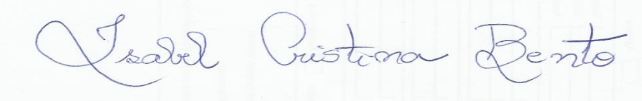 Isabel Cristina Bento